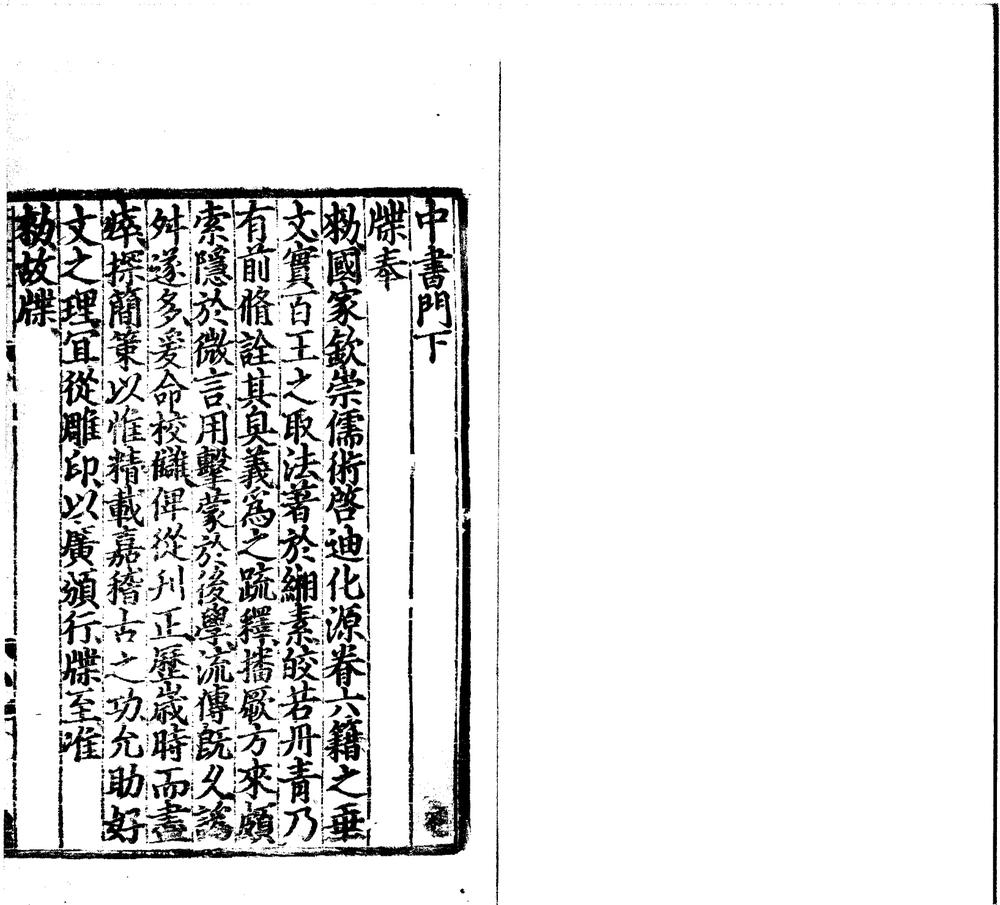 中書門下
牒奉
勑國家欽崇儒術啓迪化源眷六籍之垂
文實百王之取法著於緗素皎若丹青乃
有前脩詮其奥義爲之疏釋播厥方來頗
索隱於微言用擊蒙於後學流傳旣久譌
舛遂多爰命校讎俾從刋正歷歲時而盡
瘁探簡策以惟精載嘉稽古之功允助好
文之理宜從雕印以廣頒行牒至准
勑故牒